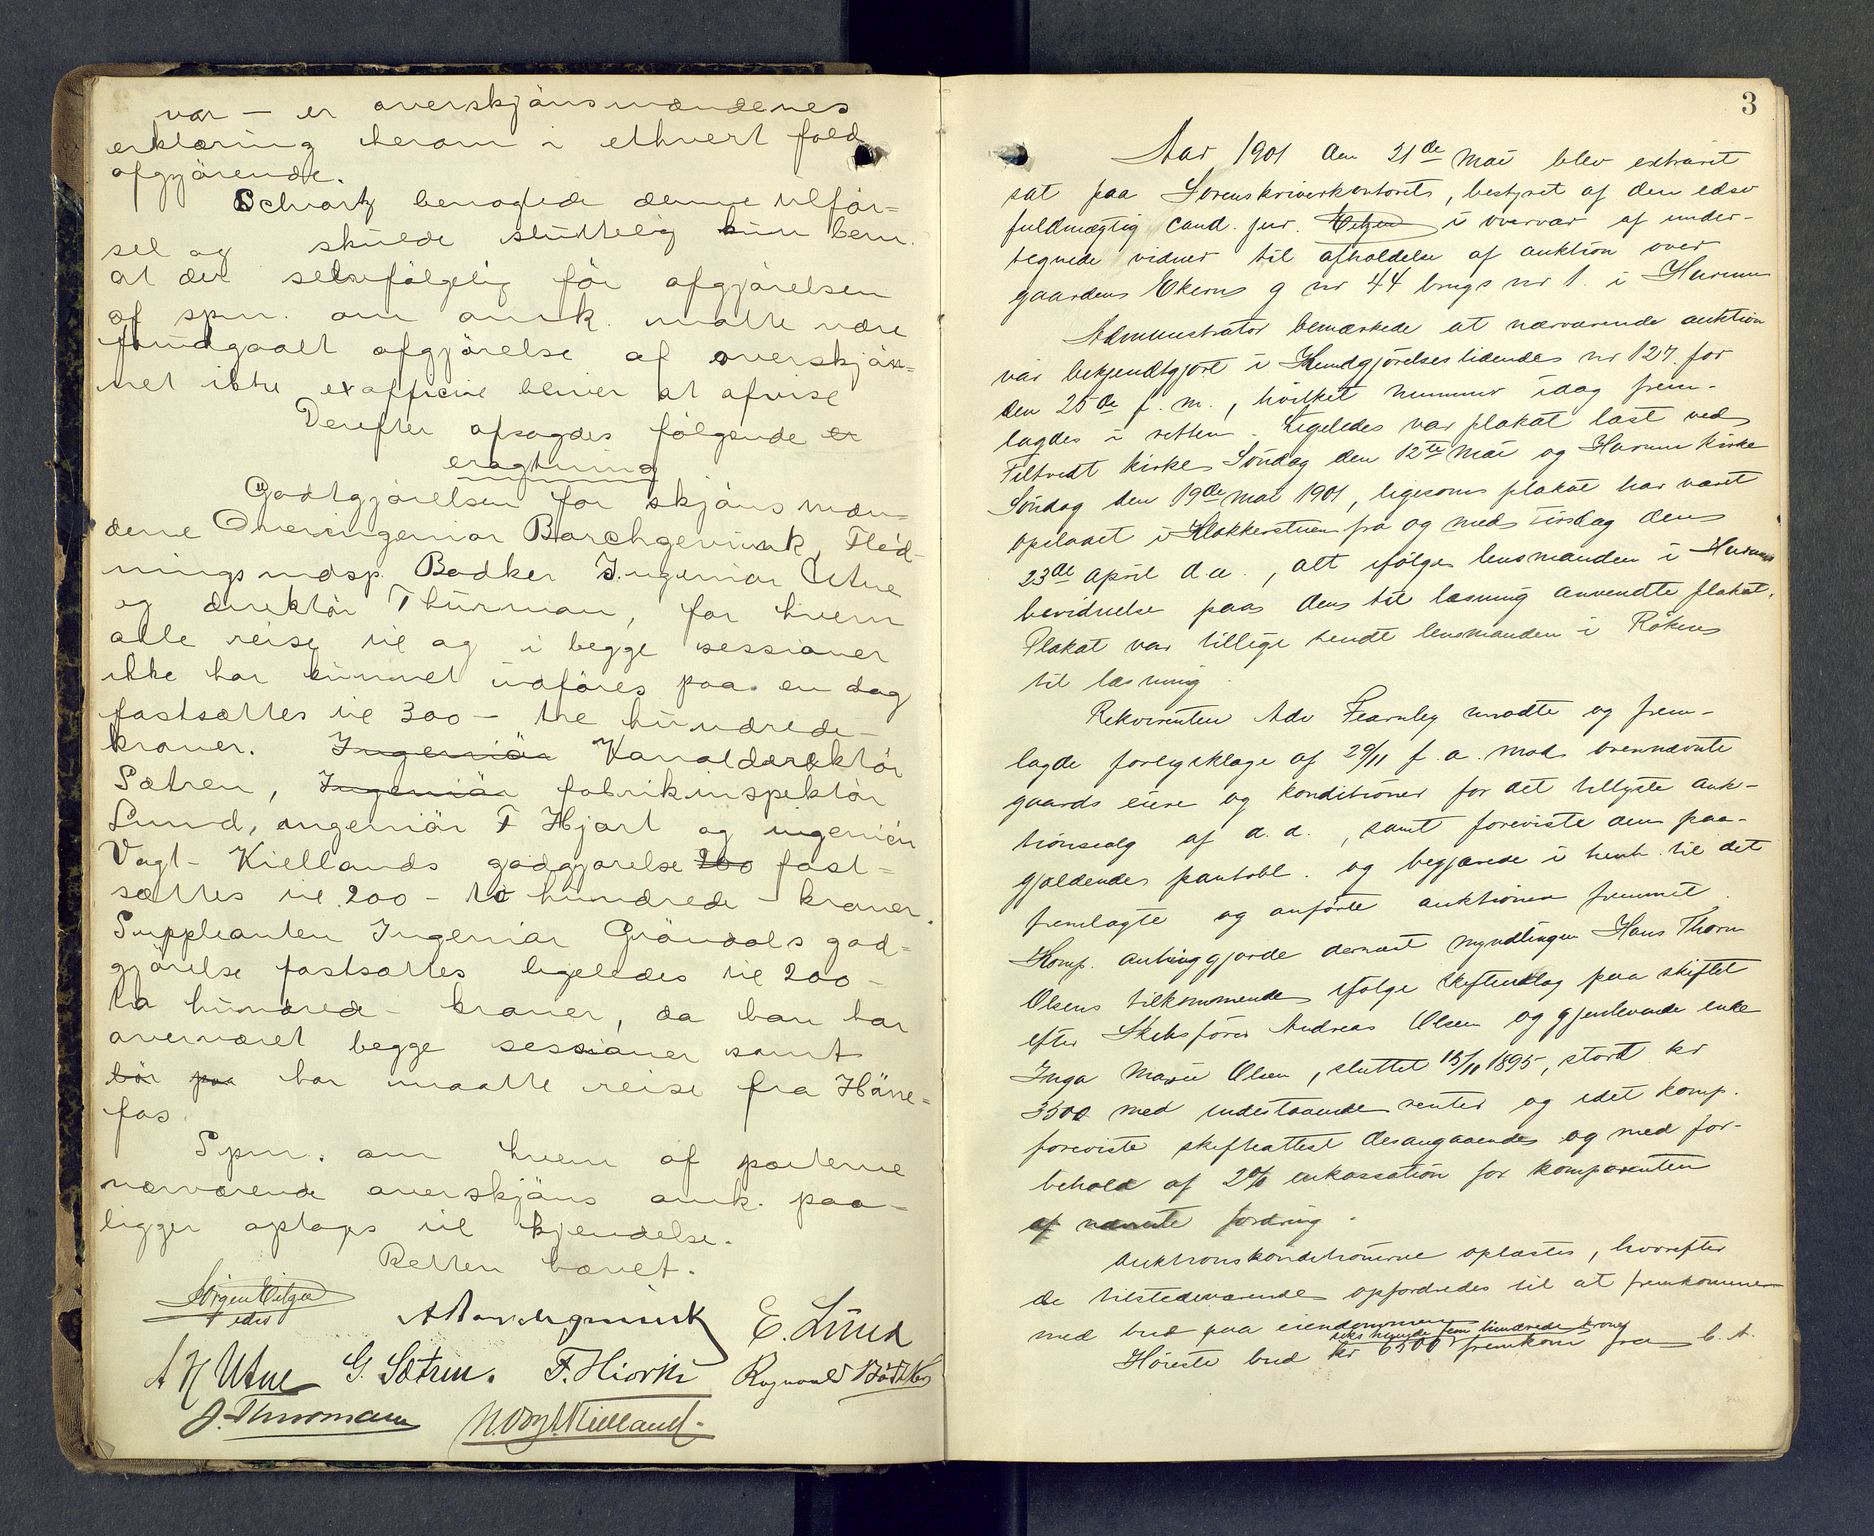 var – er overskjönsmændenes
erklæring herom i ethvert fald
afgjörende.
Schwartz benegtede denne tilför=
sel og skulde sluttelig kun bem.
at der selvfölgelig för afgjörelsen
af spm. om omk. maatte være
fundgaaet afgjörelse af overskjön=
net ikke exofficio bliver at afvise
Derefter afsagdes fölgende er
eragtning
Godtgjörelsen for skjönsmæn-
dene Overingeniör Borchgrevink, Flöd-
ningsindsp. Bödker Ingeniör Utne
og direktör Thurman, for hvem
alle reise til og i begge sessioner
ikke har kunnet udföres paa en dag
fastsættes til 300 – tre hundrede –
kroner. Ingeniör Kanaldirektör
Sætren, Ingeniör fabrikinspektör
Lund, ingeniör F Hjort og ingeniör
Vogt-Kiellands godgjörelse 200 fast=
sættes til 200 – to hundrede – kroner.
Suppleanten Ingeniör Gröndals god=
gjörelse fastsættes ligeledes til 200 –
to hundrede – kroner, da han har
overværet begge sessioner samt
bör paa har maatte reise fra Höne=
fos.
Spm. om hvem af parterne
nærværende overskjöns omk. paa-
ligger optages til kjendelse.
Retten hævet.
Jörgen Eitzen
edsv
A Borchgrevink E. Lund
A H Utne G. Sætren. F. Hiorth Rognvald Bödtker
J. Thurmann N. Vogt Kielland.
3
Aar 1901 den 21de Mai blev extraret
sat paa Sorenskriverkontoret, bestyret af den edsv
fuldmægtig cand. jur. Eitzen i overvær af under-
tegnede vidner til afholdelse af auktion over
gaarden Ekern g nr 44 brugs nr 1. i Hurum
Administrator bemærkede at nærværende auktion
var bekjendtgjort i Kundgjörelsestidende nr 127 for
den 25de f. m., hvilket nummer idag frem-
lagdes i retten. Ligeledes var plakat læst ved
Filtvedt kirke Söndag den 12te Mai og Hurum kirke
Söndag den 19de Mai 1901, ligesom plakat har været
opslaaet i Klokkerstuen fra og med tirsdag den
23de april d.a., alt ifölge lensmanden i Hurums
bevidnelse paa den til læsning anvendte plakat.
Plakat var tillige sendt lensmanden i Röken
til læsning.
Rekvirenten Adv Fearnley mødte og frem-
lagde forligsklage af 29/11 f. a. mod ovennævnte
gaards eiere og konditioner for det tillyste auk-
tionssalg af d. d., samt foreviste den paa-
gjældende pantobl. og begjærede i henh. til det
fremlagte og anförte auktionen fremmet.
Komp. anhinggjorde dernæst myndlingen Hans Thorv
Olsens tilkommende ifölge skifteudlæg paa skiftet
efter Skibsförer Andreas Olsen og gjenlevende enke
Inga Marie Olsen, sluttet 15/11 1895, stort kr
3500 med indestaaende renter og idet komp.
foreviste skifteattest desangaaende og med for-
behold af 2% inkassation for komparenten
af nævnte fordring.
Auktionskonditionerne oplæstes, hvorefter
de tilstedeværende opfordredes til at fremkomme
med bud paa eiendommen
seks tusende fem hundrede kroner
Höieste bud kr 6500 fremkom fra C. A.